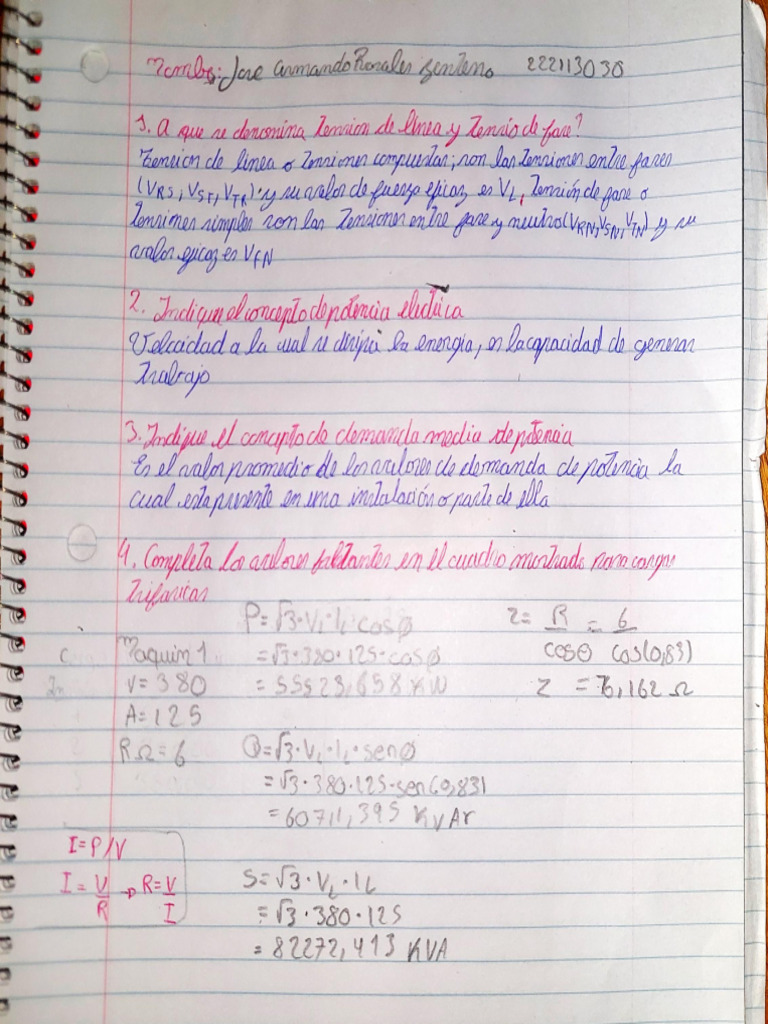 Nombre: Jose Armando Rosales Zenteno 222113038
1. A que se denomina tension de linea y tensio de fase?
Tension de linea o tensiones compuestas, son las tensiones entre fases
(VRS, VST, VTR) y su valor de fuerza eficaz es VL, Tensión de fase o
tensiones simples son las tensiones entre fase y neutro (VRN, VSN, VTN) y su
valor eficaz es VFN
2. Indique el concepto de potencia electrica
Velocidad a la cual se disipa la energia, es la capacidad de generar
trabajo
3. Indique el concepto de demanda media de potencia
Es el valor promedio de los valores de demanda de potencia la
cual esta presente en una instalación o parte de ella
4. Completa los valores faltantes en el cuadro mostrado para cargas
trifasicas
P=√3·VL·IL cosø
=√3·380·125·cosø
= 55523,658 KW
Z= R/cosθ = 6/cos(0,83)
Z = 6,162 Ω
Maquin 1
V=380
A=125
RΩ=6
Q=√3·VL·IL·senø
=√3·380·125·sen(0,831
=60711,395 KVAr
I=P/V
I=V/R → R=V/I
S=√3·VL·IL
=√3·380·125
= 82272,413 KVA